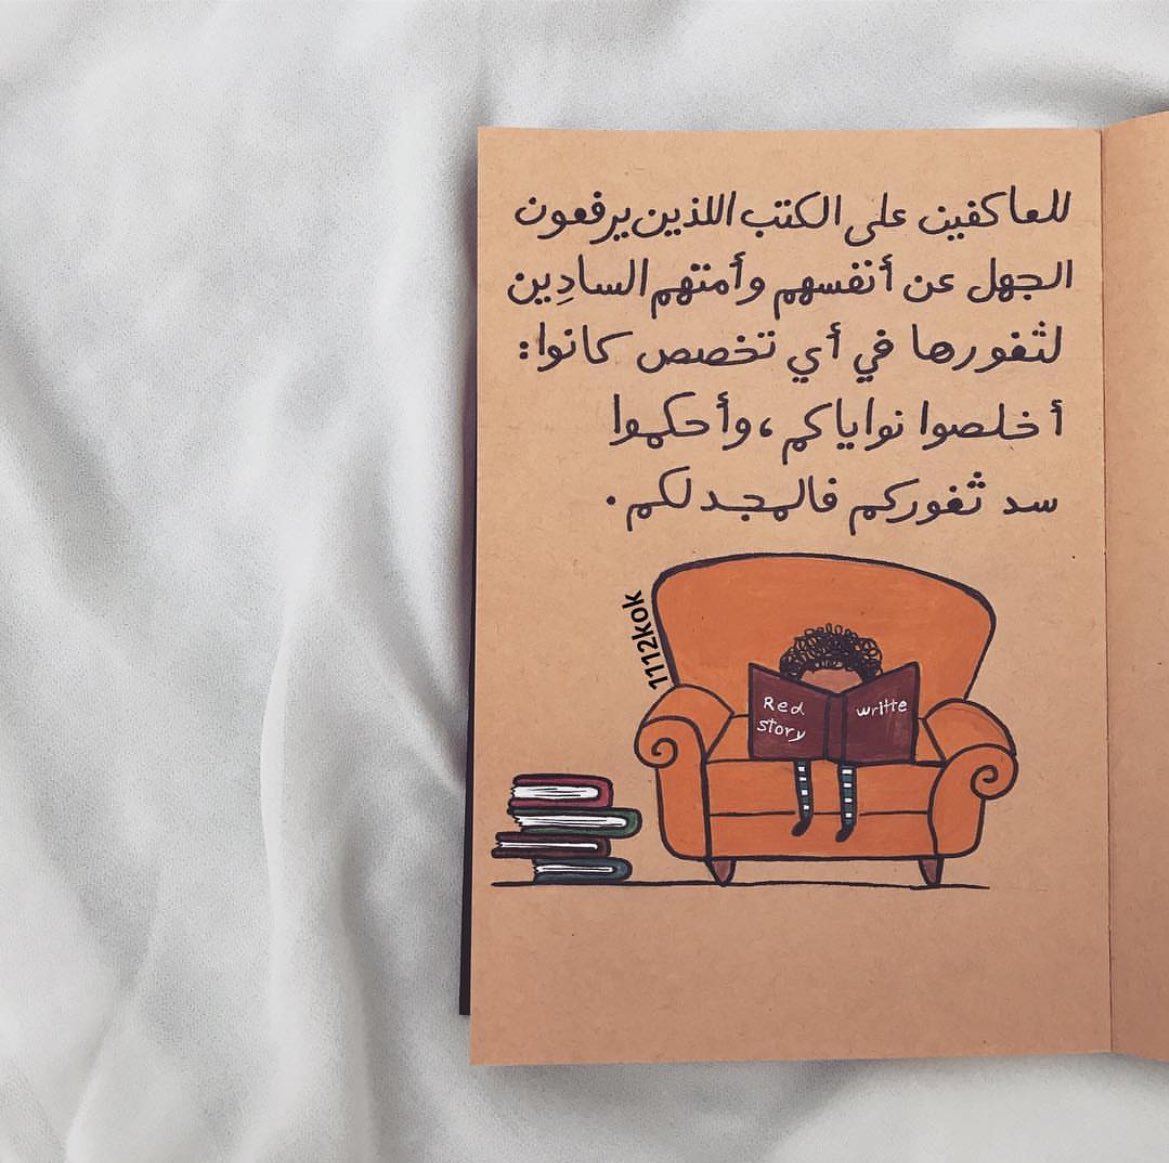 للعاكفين على الكتب اللذين يرفعون
الجهل عن أنفسهم وأمتهم السادِين
لثغورها في أي تخصص كانوا:
أخلصوا نواياكم، وأحكموا
سد ثغوركم فالمجد لكم.
1112kok
Red writte
story